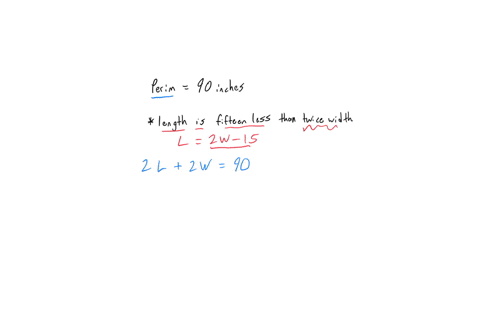 Perim = 90 inches
* length is fifteen less than twice width
L = 2W - 15
2L + 2W = 90